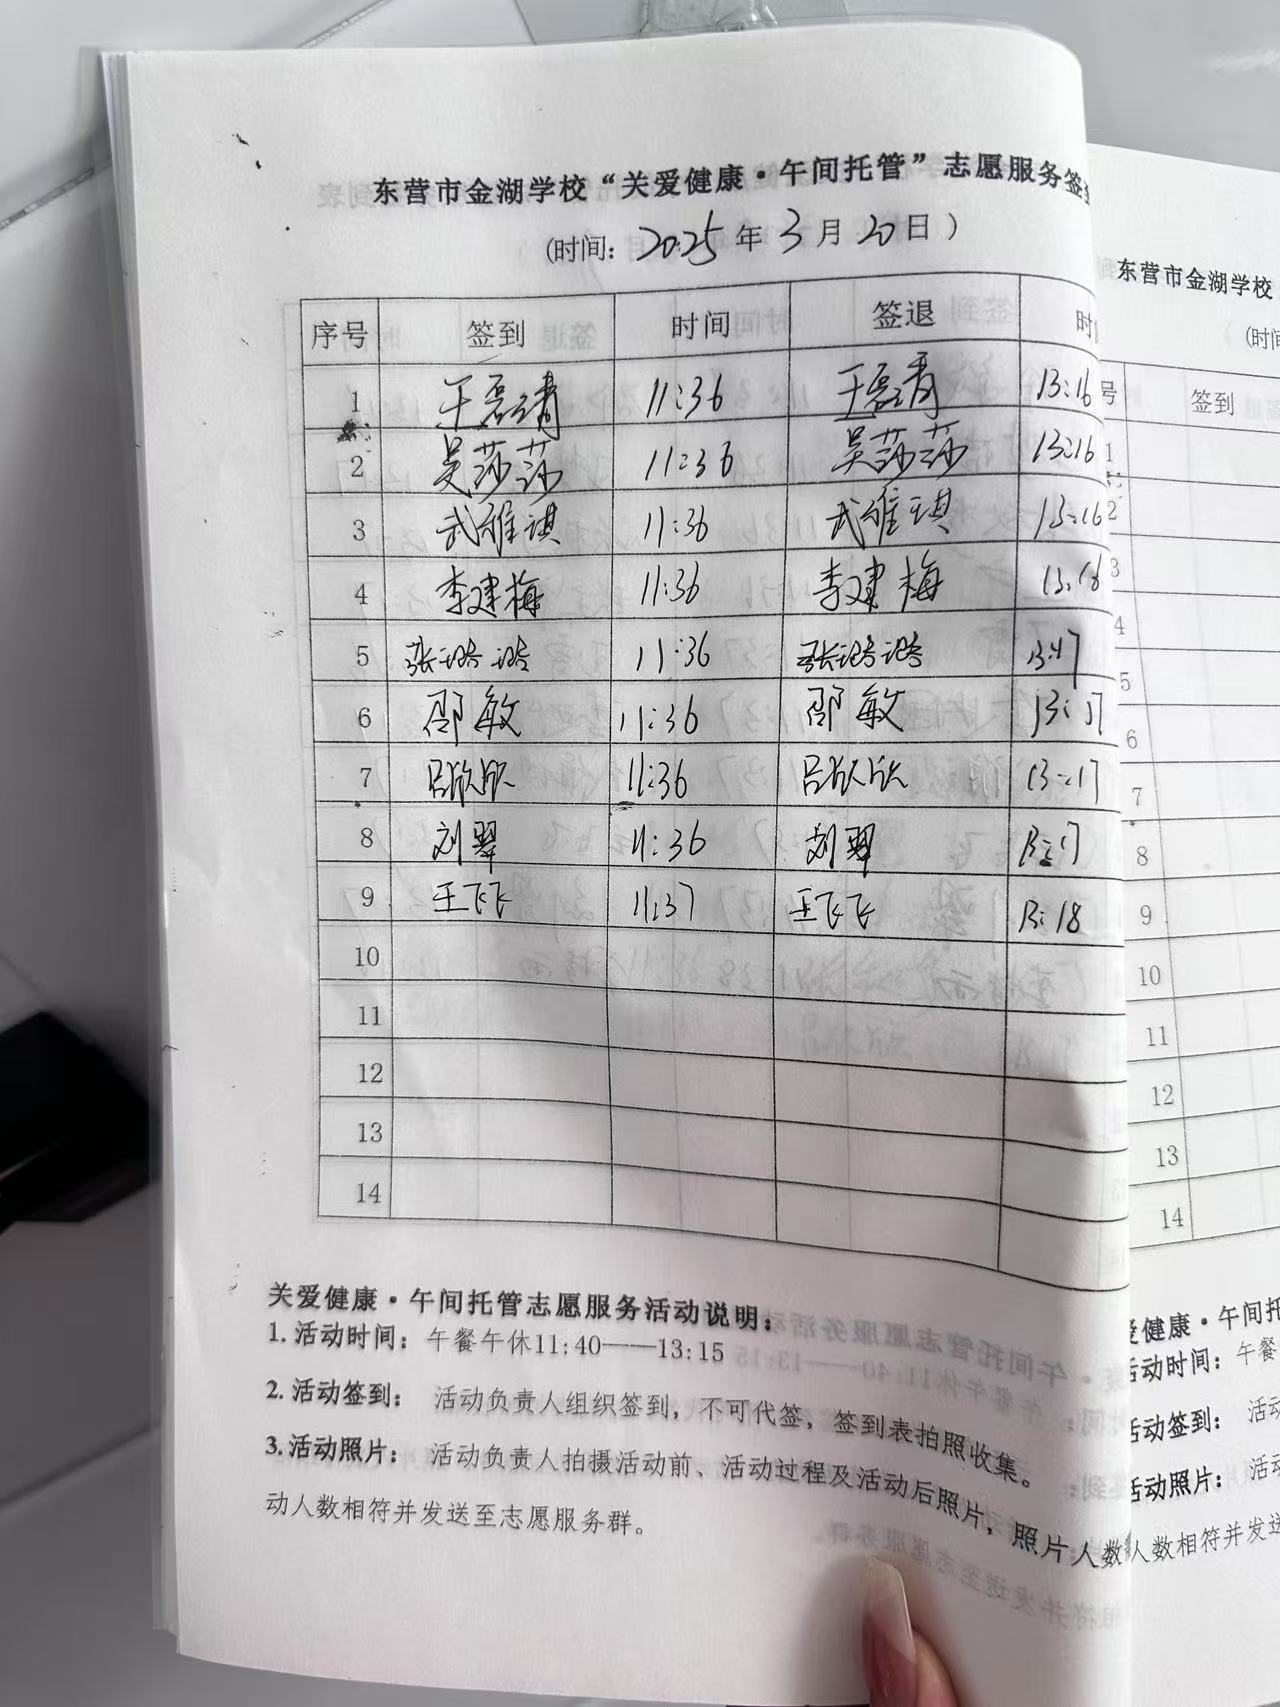 东营市金湖学校“关爱健康·午间托管”志愿服务签到
(时间: 2025 年 3 月 20 日 )
序号 签到 时间 签退 时间
1 王磊靖 11:36 王磊青 13:16
2 吴莎莎 11:36 吴莎莎 13:16
3 武雅琪 11:36 武雅琪 13:16
4 李建梅 11:36 李建梅 13:16
5 张璐璐 11:36 张璐璐 13:17
6 邵敏 11:36 邵敏 13:17
7 吕欣欣 11:36 吕欣欣 13:17
8 刘翠 11:36 刘翠 13:17
9 王飞飞 11:37 王飞飞 13:18
10
11
12
13
14
关爱健康·午间托管志愿服务活动说明:
1.活动时间: 午餐午休11:40——13:15
2.活动签到: 活动负责人组织签到,不可代签,签到表拍照收集。
3.活动照片: 活动负责人拍摄活动前、活动过程及活动后照片,照片人数
动人数相符并发送至志愿服务群。
东营市金湖学校
(时间
号 签到
1
2
3
4
5
6
7
8
9
10
11
12
13
14
爱健康·午间托
活动时间: 午餐
活动签到: 活动
活动照片: 活动
人数相符并发送